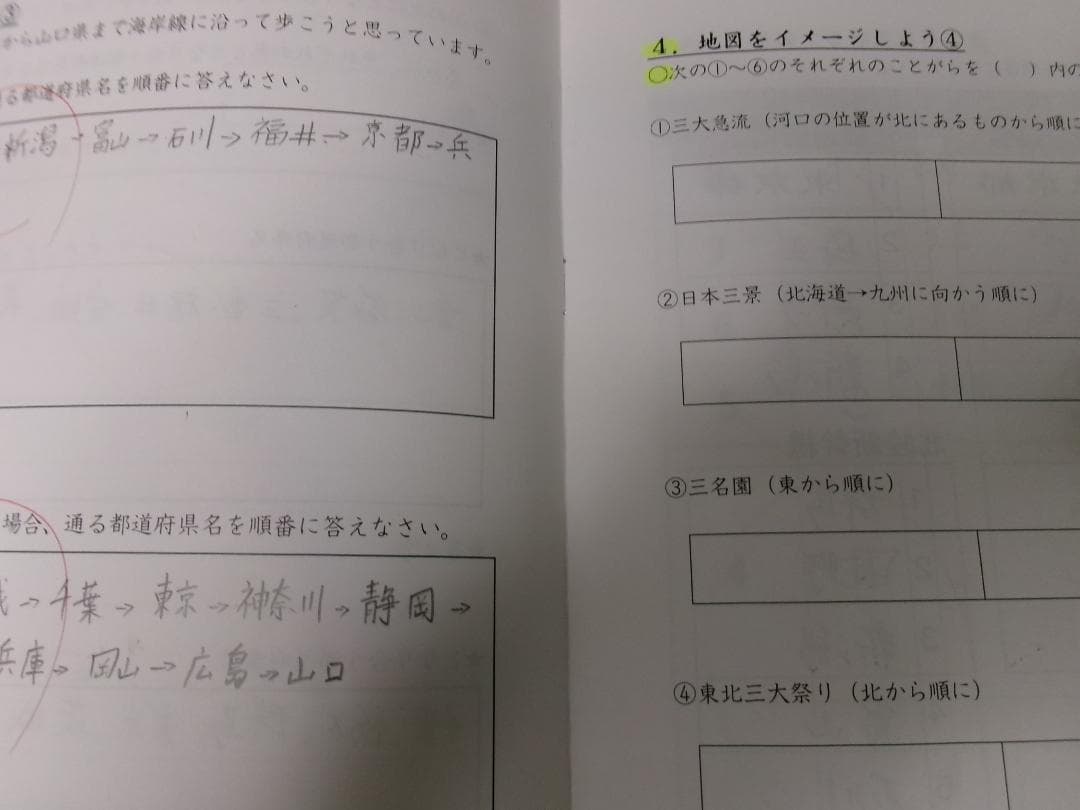 ③
から山口県まで海岸線に沿って歩こうと思っています。
る都道府県名を順番に答えなさい。
新潟→富山→石川→福井→京都→兵
場合、通る都道府県名を順番に答えなさい。
→千葉→東京→神奈川→静岡→
兵庫→岡山→広島→山口
4．地図をイメージしよう④
○次の①～⑥のそれぞれのことがらを（　）内の
①三大急流（河口の位置が北にあるものから順に
②日本三景（北海道→九州に向かう順に）
③三名園（東から順に）
④東北三大祭り（北から順に）